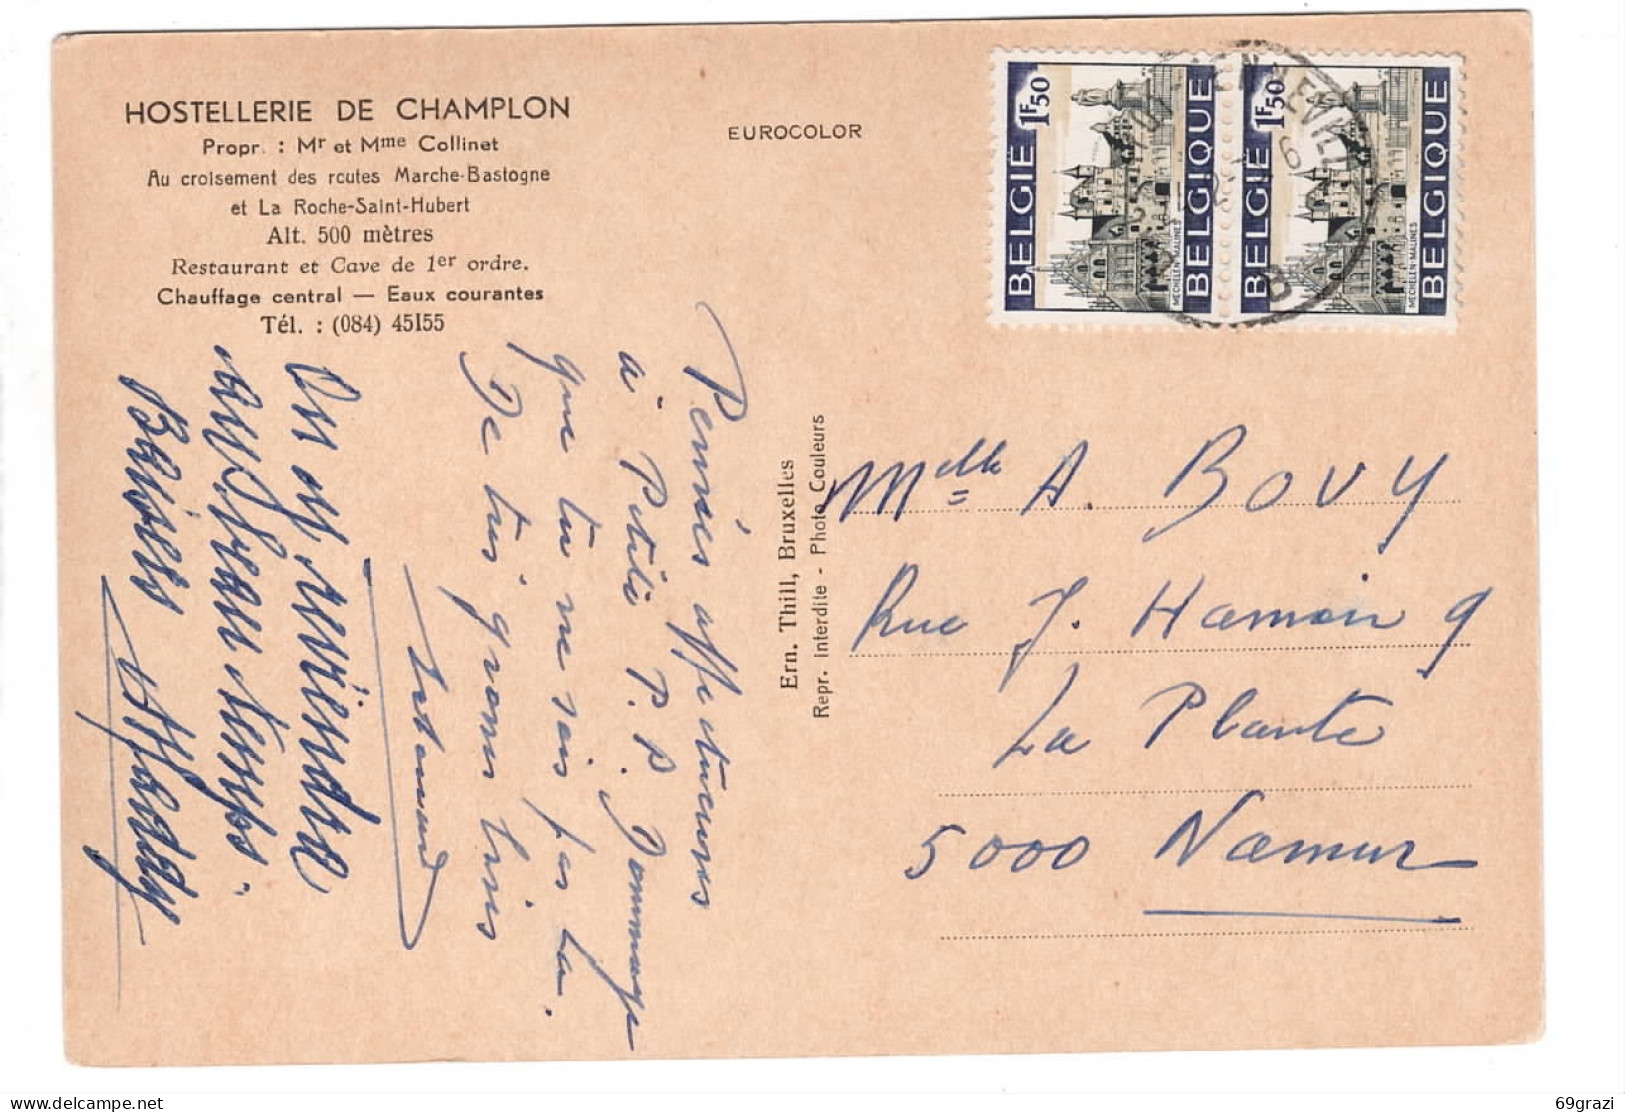 HOSTELLERIE DE CHAMPLON
Propr. : Mr et Mme Collinet
Au croisement des routes Marche-Bastogne
et La Roche-Saint-Hubert
Alt. 500 mètres
Restaurant et Cave de 1er ordre.
Chauffage central — Eaux courantes
Tél. : (084) 45155
EUROCOLOR
1F50
BELGIE
BELGIQUE
MECHELEN-MALINES
1F50
BELGIE
BELGIQUE
MECHELEN-MALINES
Ern. Thill, Bruxelles
Repr. interdite - Photo Couleurs
Pensées affectueuses
à Petite P.P. Dommage
que tu ne sois pas la.
De très gros bises
On y reviendra
beau temps.
Bises
Melle A. BOVY
Rue J. Hamoir 9
La Plante
5000 Namur
69grazi